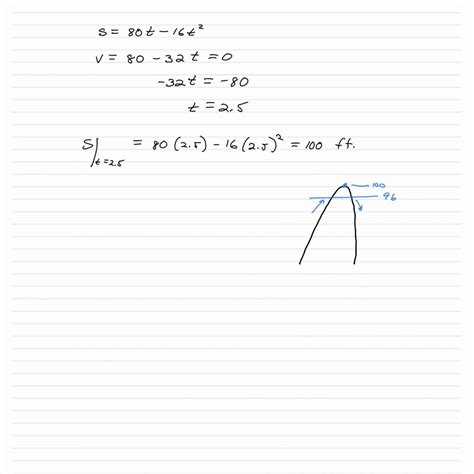 s = 80t - 16t²
v = 80 - 32t = 0
-32t = -80
t = 2.5
S|t=2.5 = 80(2.5) - 16(2.5)² = 100 ft.
100
96